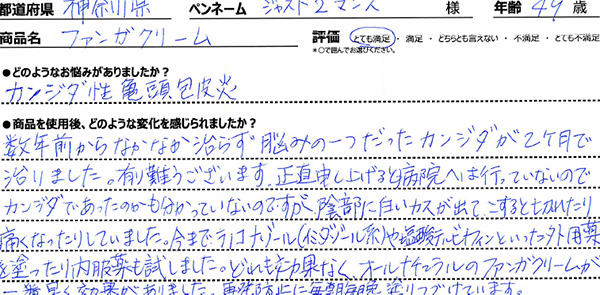 都道府県 神奈川県 ペンネーム ジャスト2マンス 様 年齢 49歳
商品名 ファンガクリーム 評価 とても満足・満足・どちらとも言えない・不満足・とても不満足
*○で囲んでお選びください。
●どのようなお悩みがありましたか?
カンジダ性亀頭包皮炎
●商品を使用後、どのような変化を感じられましたか?
数年前からなかなか治らず悩みの一つだったカンジダが2ケ月で
治りました。有り難うございます。正直申し上げると病院へは行っていないので
カンジダであったのかも分かっていないのですが、陰部に白いカスが出て、こすると切れたり
痛くなったりしていました。今までラノコナゾール(イミダゾール系)や塩酸テルビナフィンといった外用薬
を塗ったり内服薬も試しました。どれも効果なく、オールナチュラルのファンガクリームが
一番早く効果がありました。再発防止に毎朝毎晩塗りつづけています。